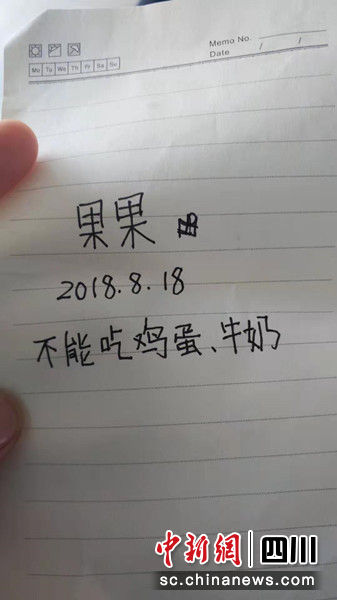 Memo No.
Date / /
Mo Tu We Th Fr Sa Su
果果
2018.8.18
不能吃鸡蛋、牛奶
中新網 四川
sc.chinanews.com